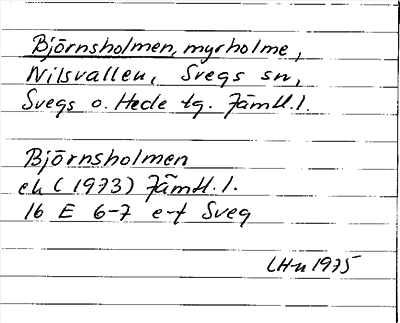 Björnsholmen, myrholme,
Nilsvallen, Svegs sn,
Svegs o. Hede tg. Jämtl. l.
Björnsholmen
ek (1973) Jämtl. l.
16 E 6-7 e-f Sveg
LHn 1975